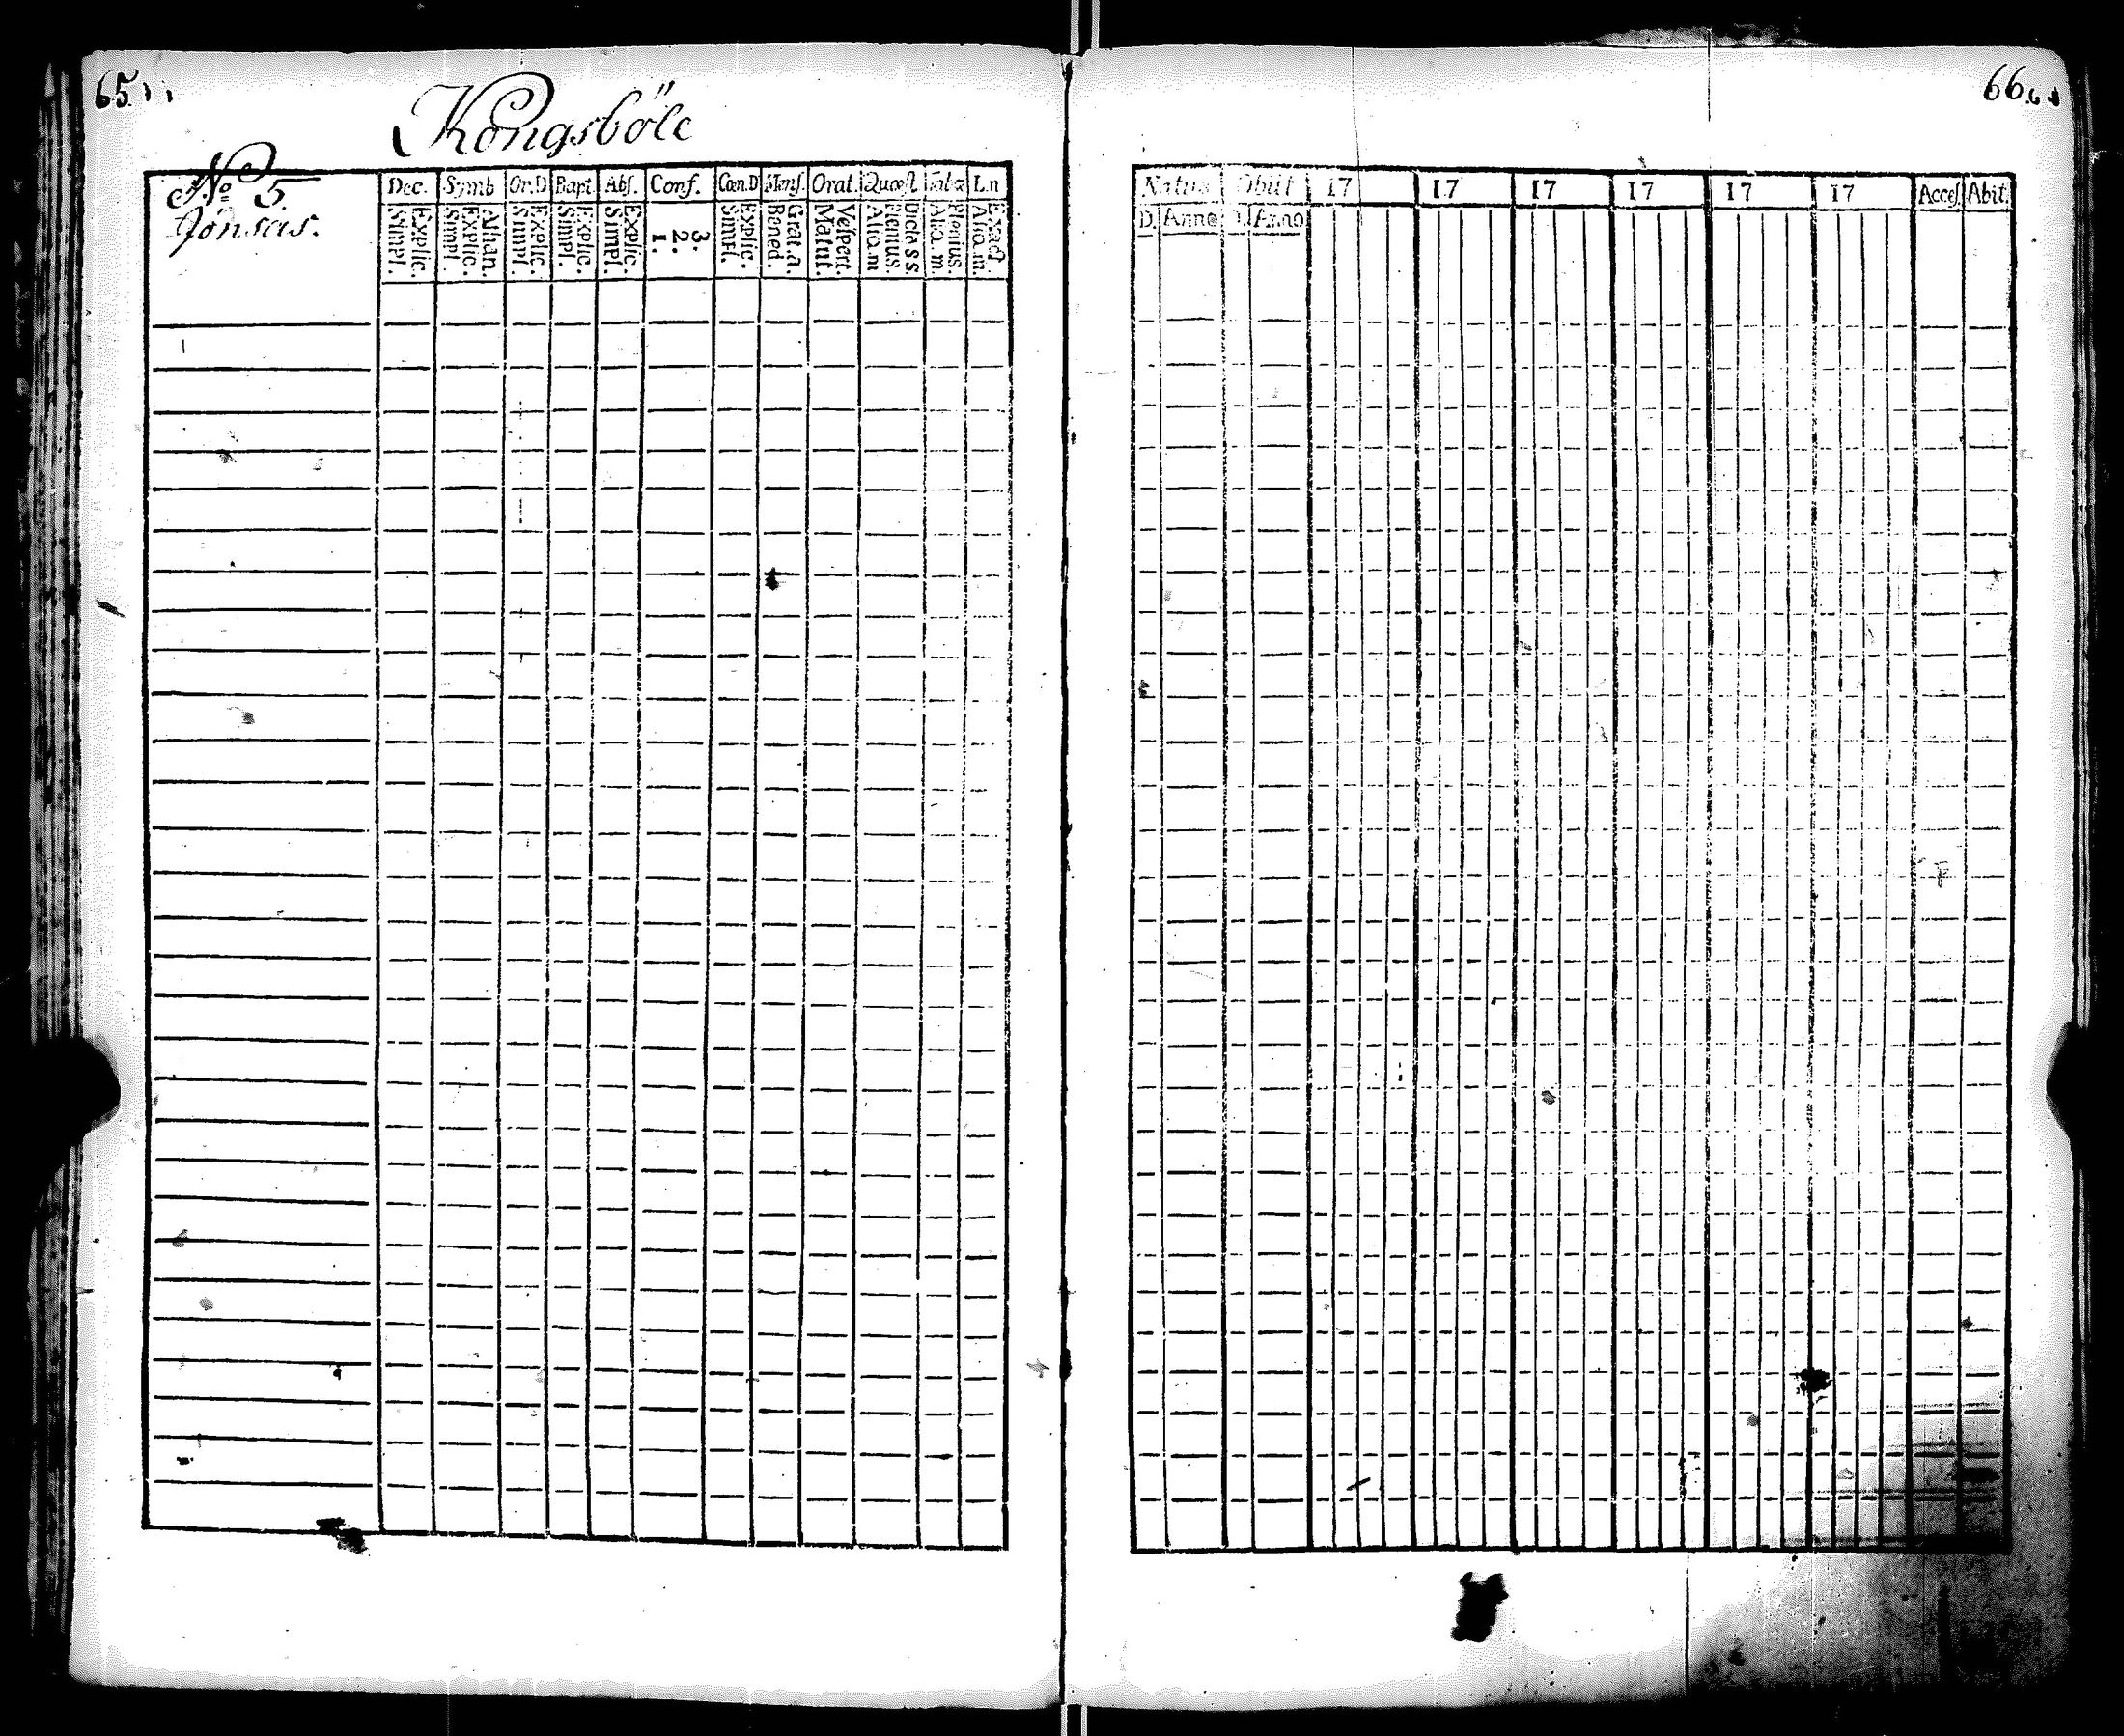 65.
Kongsböle
No 5.
Jönsas.
Dec. Symb Or.D Bapt. Abs. Conf. Cœn.D Mens. Orat. Quæst. Tabæ L.n
Simpl. Explic. Simpl. Explic. Athan. Simpl. Explic. Simpl. Explic. Simpl. Explic. 1. 2. 3. Simpl. Explic. Bened. Grat.a. Matut. Vespert. Alio.m Plenius. Dicta s s. Alio.m. Plenius. Alio.m. Exact.
66.
Natus Obiit 17 17 17 17 17 17 Acces. Abit.
D. Anno D. Anno